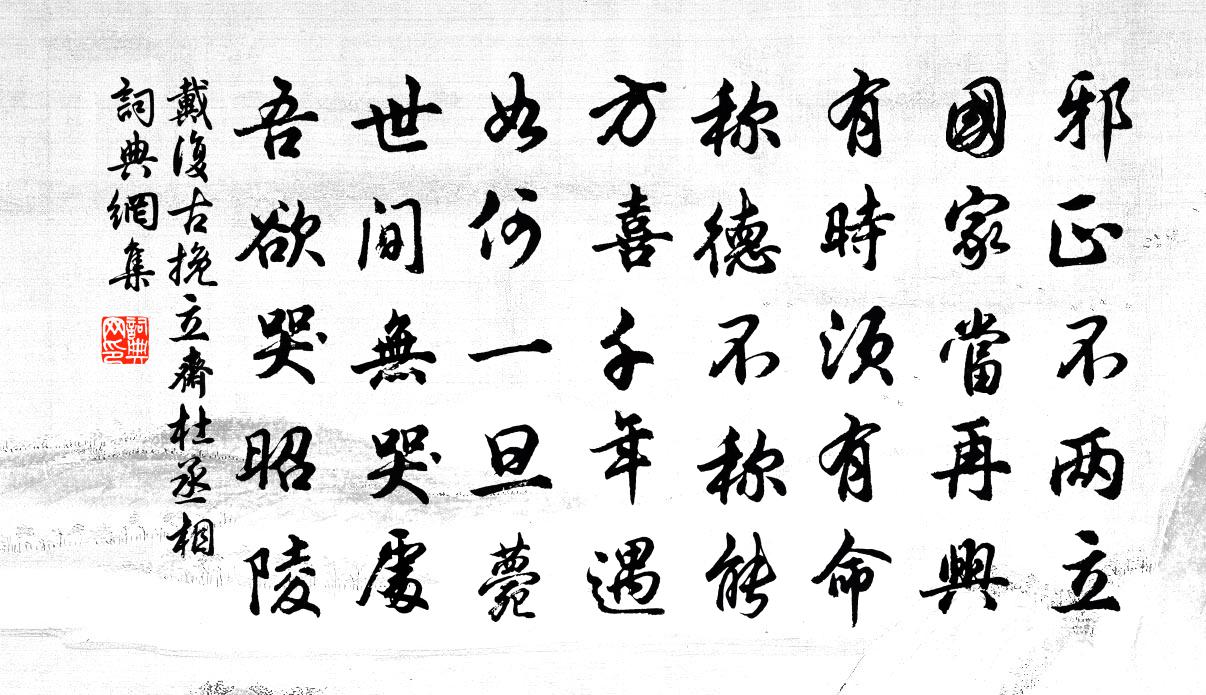 邪正不两立
國家當再興
有時須有命
称德不称能
方喜千年遇
如何一旦薨
世间無哭處
吾欲哭昭陵
戴復古挽立齋杜丞相
詞典網集
詞典網印